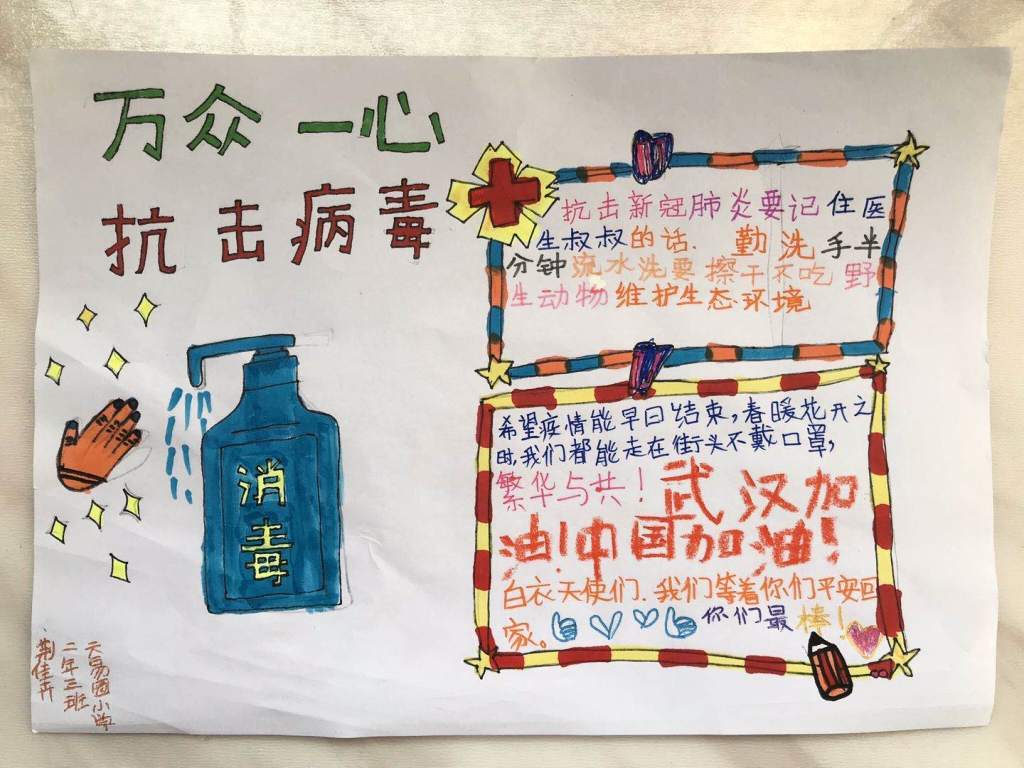 万众一心
抗击病毒
抗击新冠肺炎要记住医
生叔叔的话.勤洗手半
分钟流水洗要擦干不吃野
生动物维护生态环境
消
毒
希望疫情能早日结束,春暖花开之
时,我们都能走在街头不戴口罩,
繁华与共!武汉加
油!中国加油!
白衣天使们.我们等着你们平安回
家。你们最棒!
天易园小学
二年三班
荆佳卉